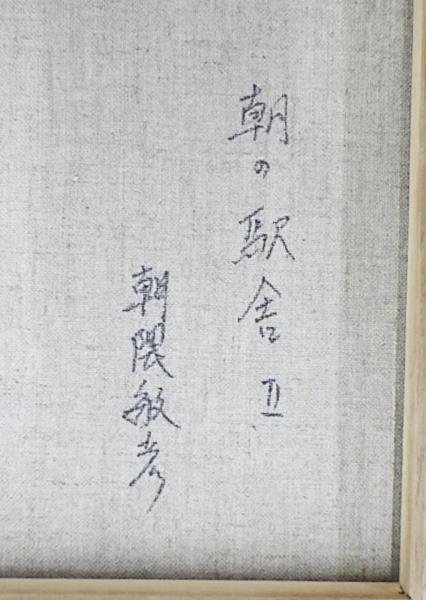 朝の駅舎 II
朝隈敏彦